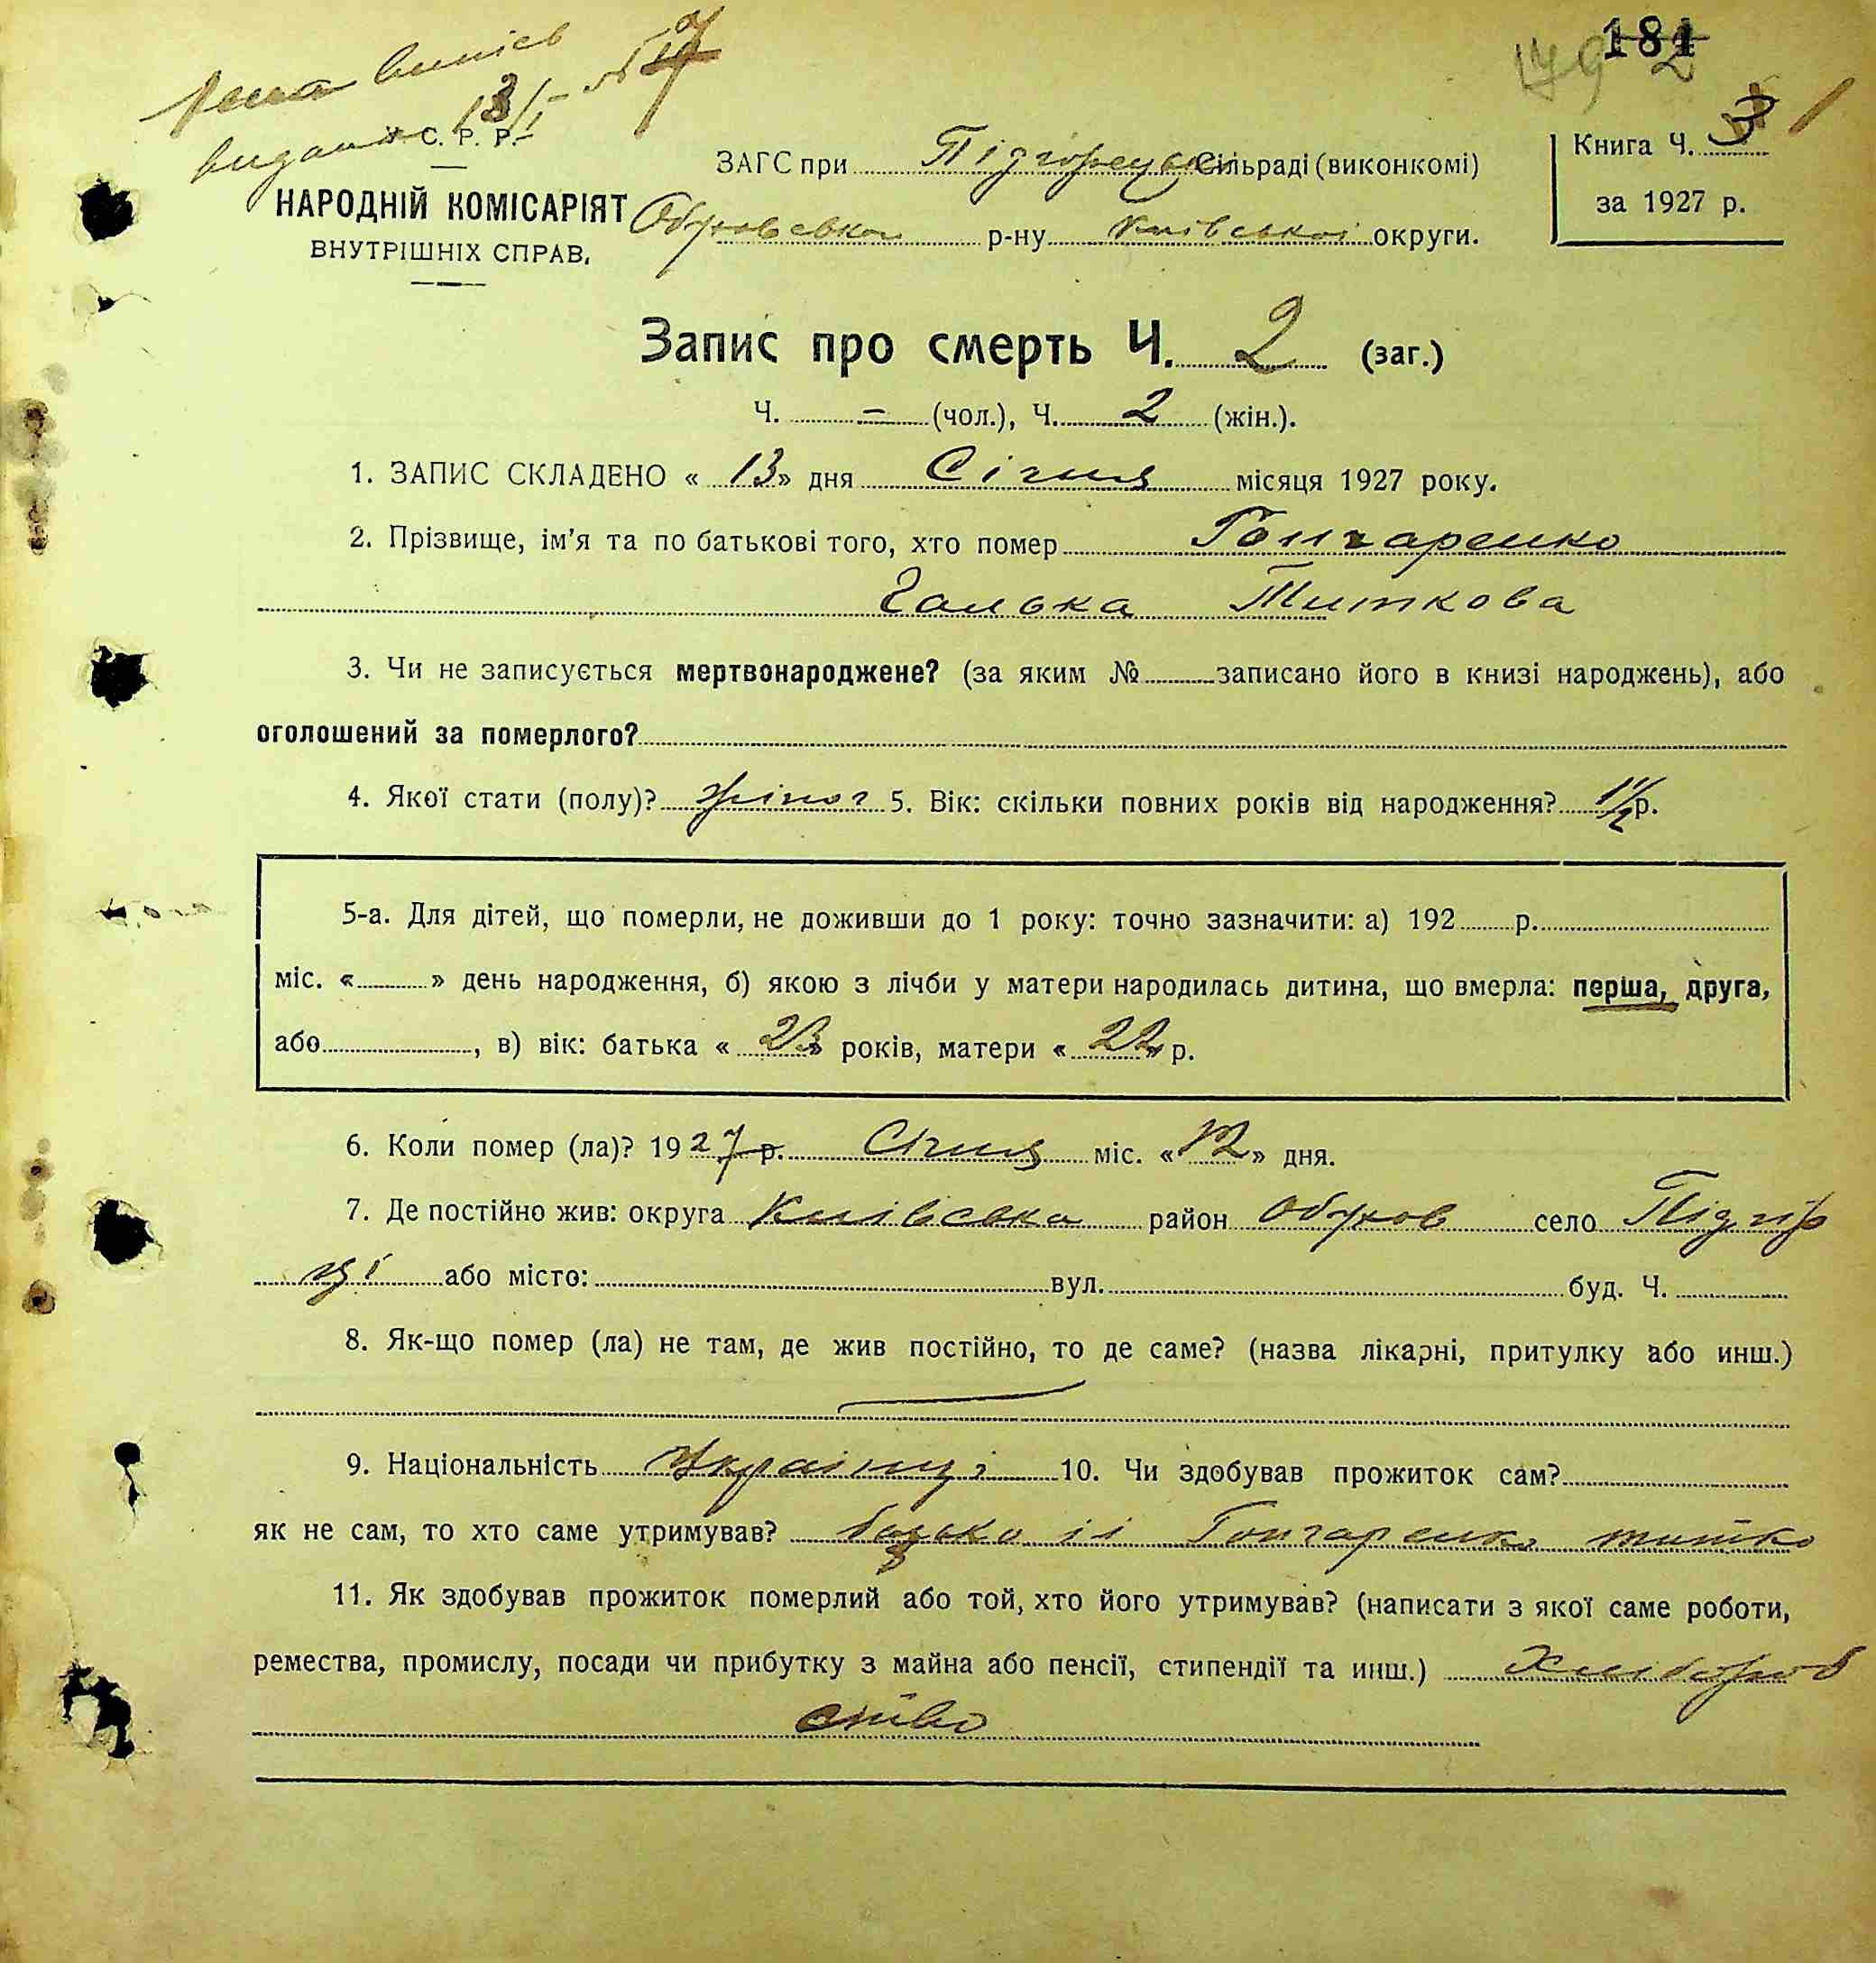 181
179 2
випіс
видана 13/I
У. С. Р. Р.
НАРОДНІЙ КОМІСАРІЯТ
ВНУТРІШНІХ СПРАВ.
ЗАГС при Підгорецькі Сільраді (виконкомі)
Обухівської р-ну Київської округи.
Книга Ч. 3
за 1927 р.
Запис про смерть Ч. 2 (заг.)
Ч. – (чол.), Ч. 2 (жін.).
1. ЗАПИС СКЛАДЕНО « 13 » дня Січня місяця 1927 року.
2. Прізвище, ім’я та по батькові того, хто помер Гончаренко
Галька Титкова
3. Чи не записується мертвонароджене? (за яким № записано його в книзі народжень), або
оголошений за померлого?
4. Якої стати (полу)? жіноч 5. Вік: скільки повних років від народження? 1½ р.
5-а. Для дітей, що померли, не доживши до 1 року: точно зазначити: а) 192 р.
міс. « » день народження, б) якою з лічби у матери народилась дитина, що вмерла: перша, друга,
або , в) вік: батька « 23 » років, матери « 22 » р.
6. Коли помер (ла)? 1927 р. Січня міс. « 12 » дня.
7. Де постійно жив: округа Київська район Обухов село Підгір
ці або місто: вул. буд. Ч.
8. Як-що помер (ла) не там, де жив постійно, то де саме? (назва лікарні, притулку або инш.)
9. Національність Українці 10. Чи здобував прожиток сам?
як не сам, то хто саме утримував? батько іі Гончаренко Титко
11. Як здобував прожиток померлий або той, хто його утримував? (написати з якої саме роботи,
ремества, промислу, посади чи прибутку з майна або пенсії, стипендії та инш.) Хлибороб
ство